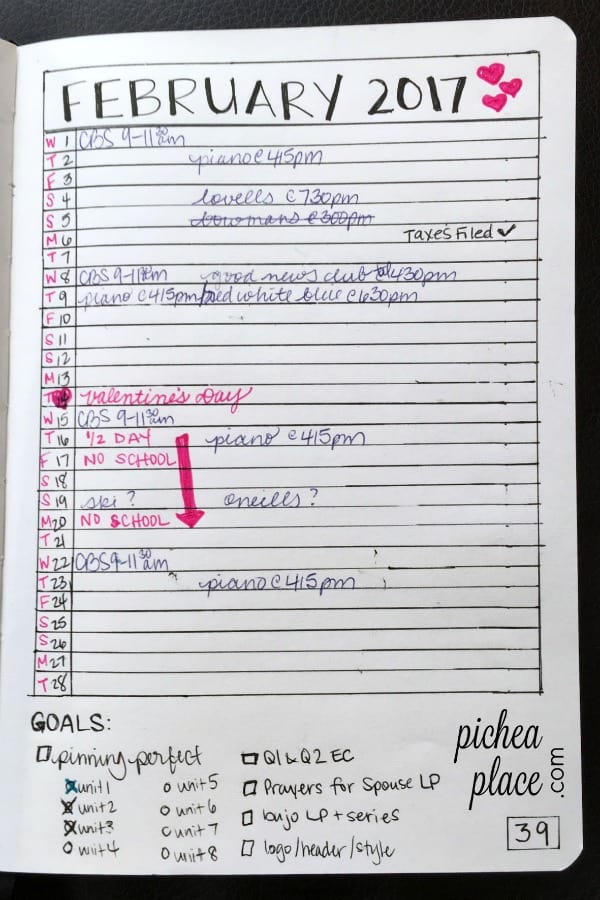 FEBRUARY 2017
W 1 CBS 9-11:30am
T 2 piano @ 415pm
F 3
S 4 lovells @ 730pm
S 5 bowmans @ 300pm
M 6 Taxes Filed ✓
T 7
W 8 CBS 9-11:30am good news club 430pm
T 9 piano @ 415pm/red white blue @ 630pm
F 10
S 11
S 12
M 13
T 14 Valentine's Day
W 15 CBS 9-11:30am
T 16 1/2 DAY piano @ 415pm
F 17 NO SCHOOL
S 18
S 19 ski? oneills?
M 20 NO SCHOOL
T 21
W 22 CBS 9-11:30am
T 23 piano @ 415pm
F 24
S 25
S 26
M 27
T 28
GOALS:
pinning perfect
unit 1
unit 2
unit 3
unit 4
unit 5
unit 6
unit 7
unit 8
Q1 & Q2 EC
Prayers for Spouse LP
bujo LP + series
logo/header/style
pichea
place.com
39